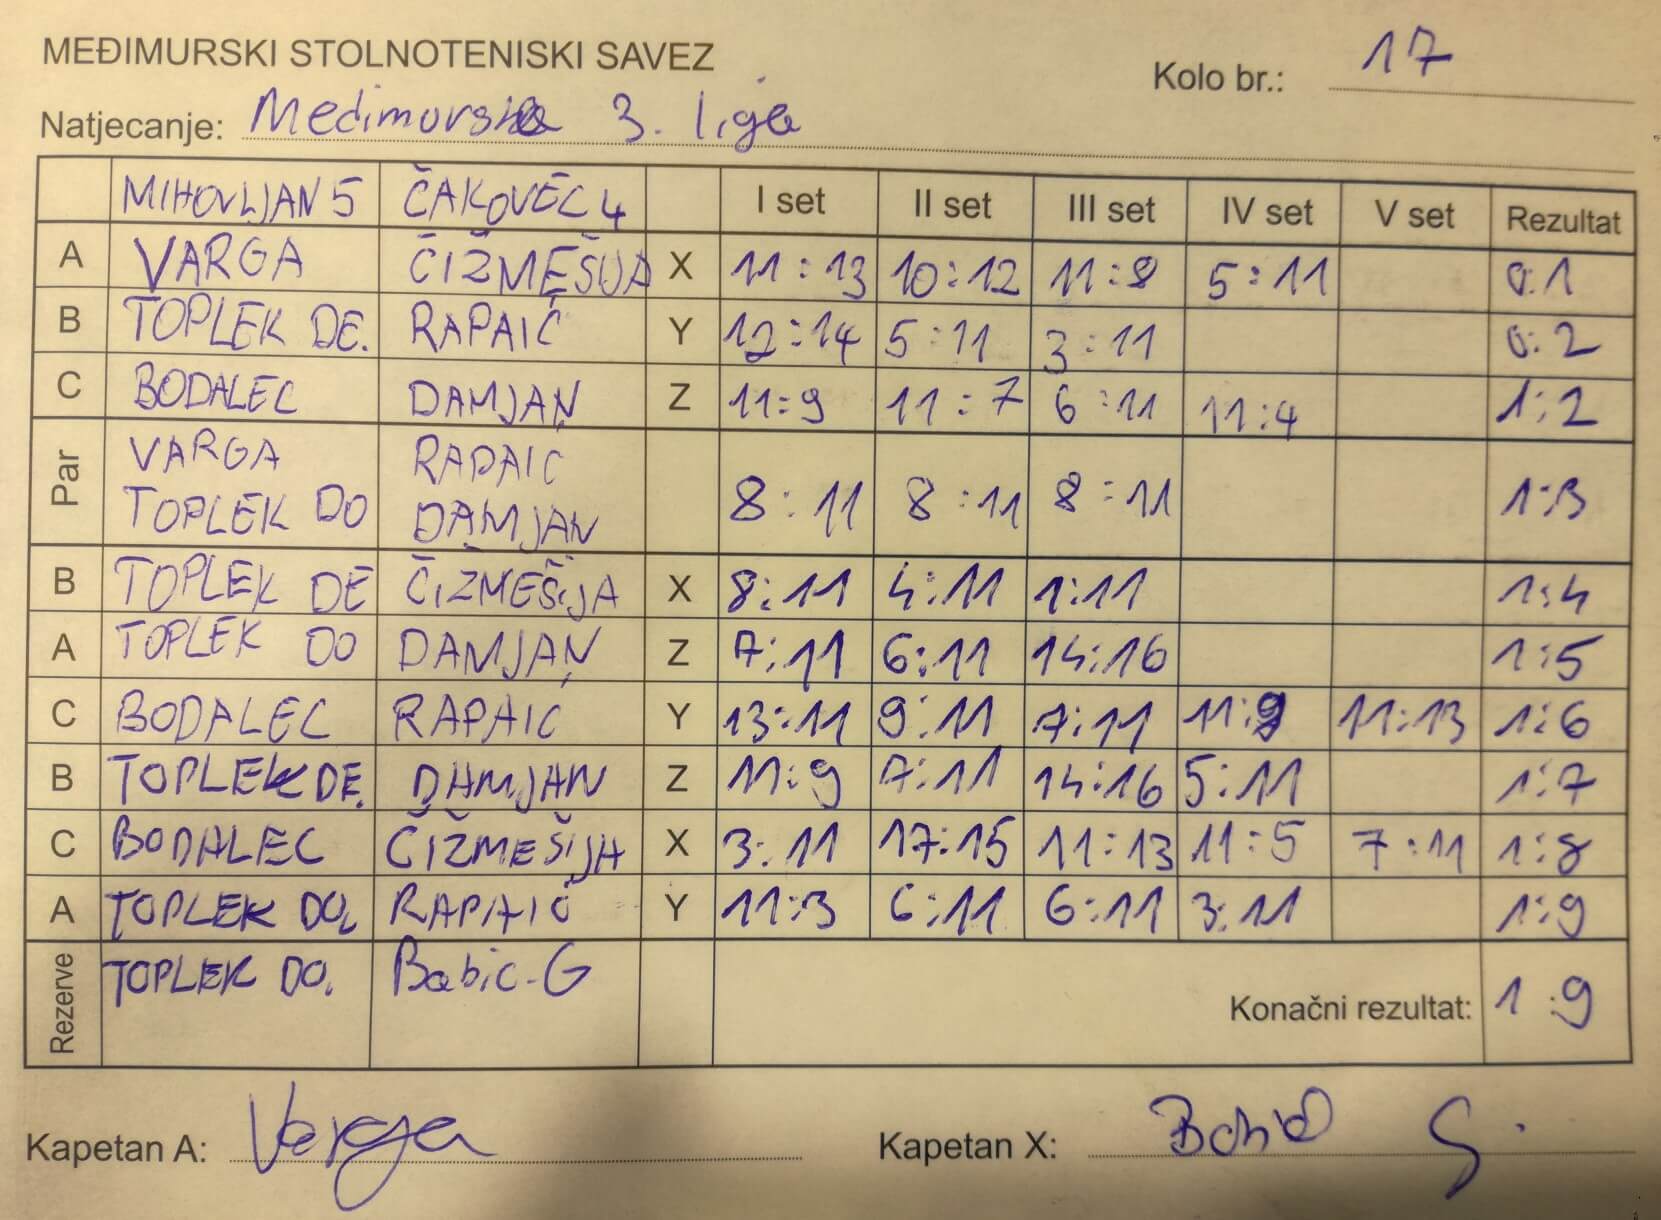 MEĐIMURSKI STOLNOTENISKI SAVEZ
Kolo br.: 17
Natjecanje: Međimurska 3. liga
MIHOVLJAN 5 ČAKOVEC 4 I set II set III set IV set V set Rezultat
A VARGA ČIŽMEŠIJA X 11:13 10:12 11:8 5:11 0:1
B TOPLEK DE. RAPAIĆ Y 12:14 5:11 3:11 0:2
C BODALEC DAMJAN Z 11:9 11:7 6:11 11:4 1:2
Par VARGA RAPAIC
TOPLEK DO DAMJAN 8:11 8:11 8:11 1:3
B TOPLEK DE ČIŽMEŠIJA X 8:11 4:11 1:11 1:4
A TOPLEK DO DAMJAN Z 7:11 6:11 14:16 1:5
C BODALEC RAPAIC Y 13:11 9:11 7:11 11:9 11:13 1:6
B TOPLEK DE. DAMJAN Z 11:9 7:11 14:16 5:11 1:7
C BODALEC ČIŽMEŠIJA X 3:11 17:15 11:13 11:5 7:11 1:8
A TOPLEK DO. RAPAIĆ Y 11:3 6:11 6:11 3:11 1:9
Rezerve TOPLEK DO. Babic-G Konačni rezultat: 1:9
Kapetan A: Varga Kapetan X: G.